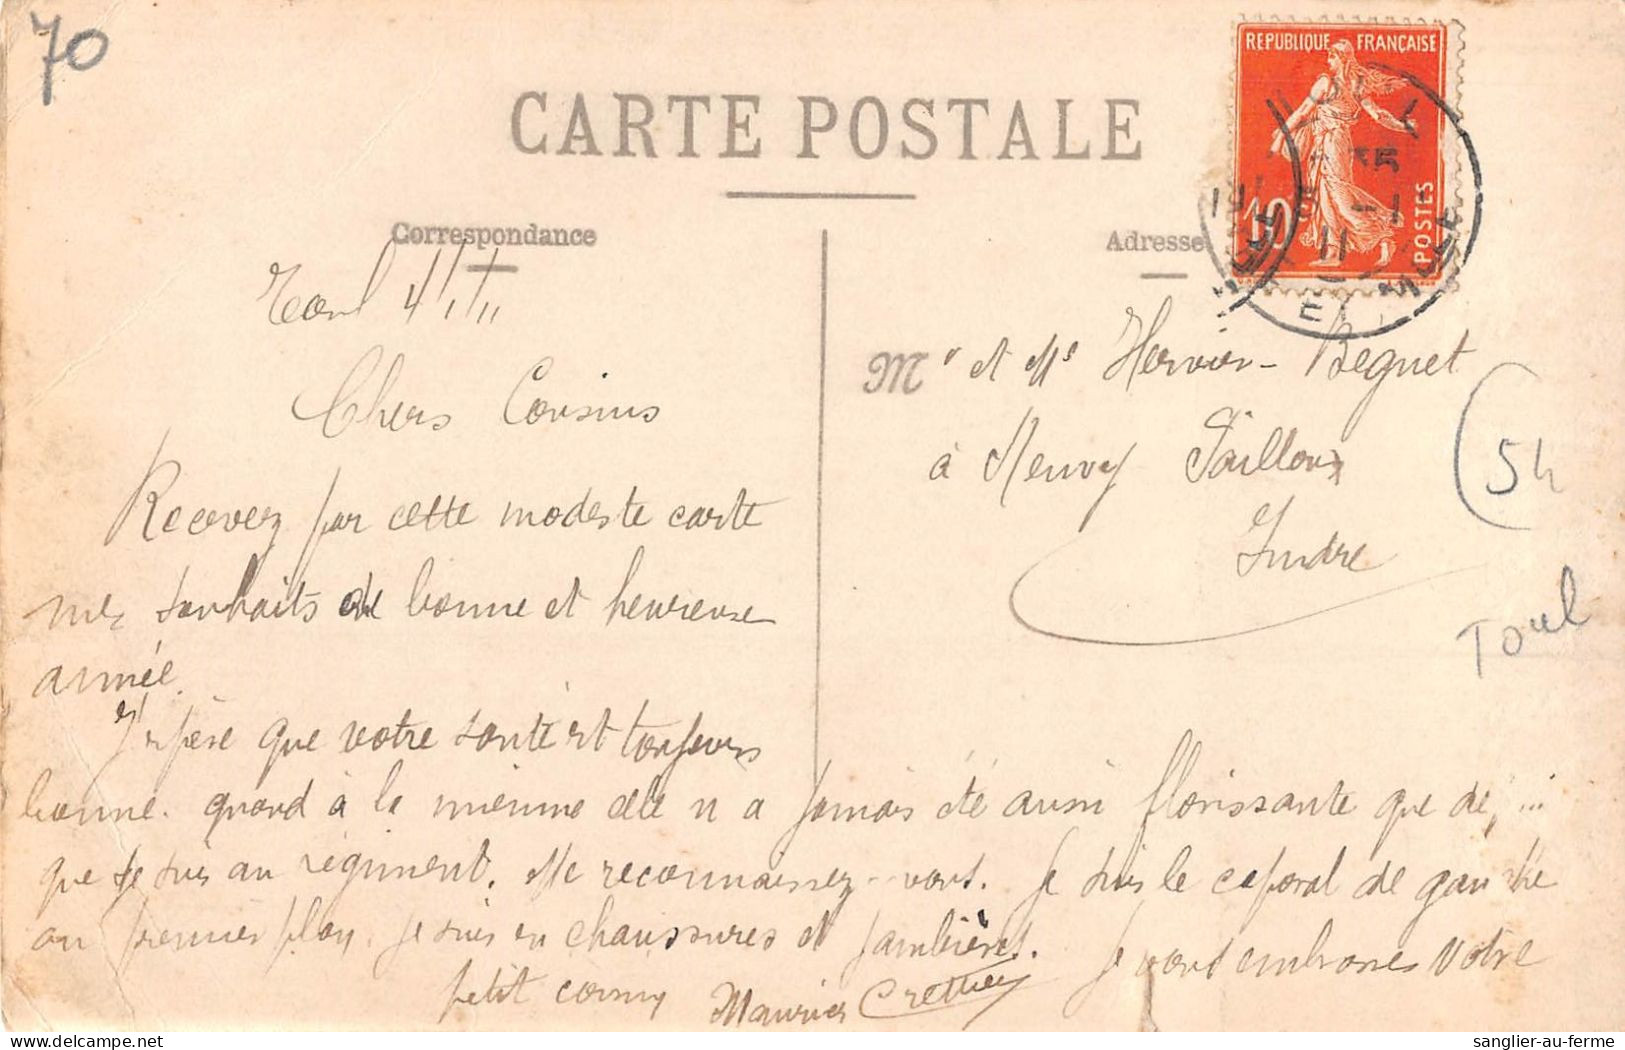 70
CARTE POSTALE
REPUBLIQUE FRANÇAISE
10
POSTES
Correspondance
Adresse
Toul 4/1/11
Chers Cousins
Recevez par cette modeste carte
mes souhaits de bonne et heureuse
année.
J'espère que votre santé est toujours
bonne. quand à la mienne elle n a jamais été aussi florissante que de, ...
que je suis au régiment. Me reconnaissez-vous. Je suis le caporal de gauche
au premier plan. je suis en chaussures et jambières. Je vous embrasse Votre
petit cousin Maurice
M r et Me Hervier-Béguet
à Neuvy Pailloux
Indre
54
Toul
sanglier-au-ferme